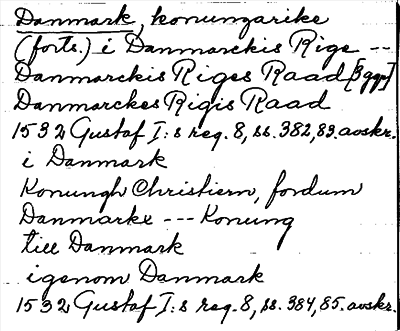 Danmark, konungarike
(forts.) i Danmarckis Rige --
Danmarckis Riges Raad [3 ggr]
Danmarckes Rigis Raad
1532 Gustaf I:s reg. 8, ss. 382,83. avskr.
i Danmark
Konungh Christiern, fordum
Danmarkx --- Konung
till Danmark
igenom Danmark
1532 Gustaf I:s reg. 8, ss. 384,85. avskr.